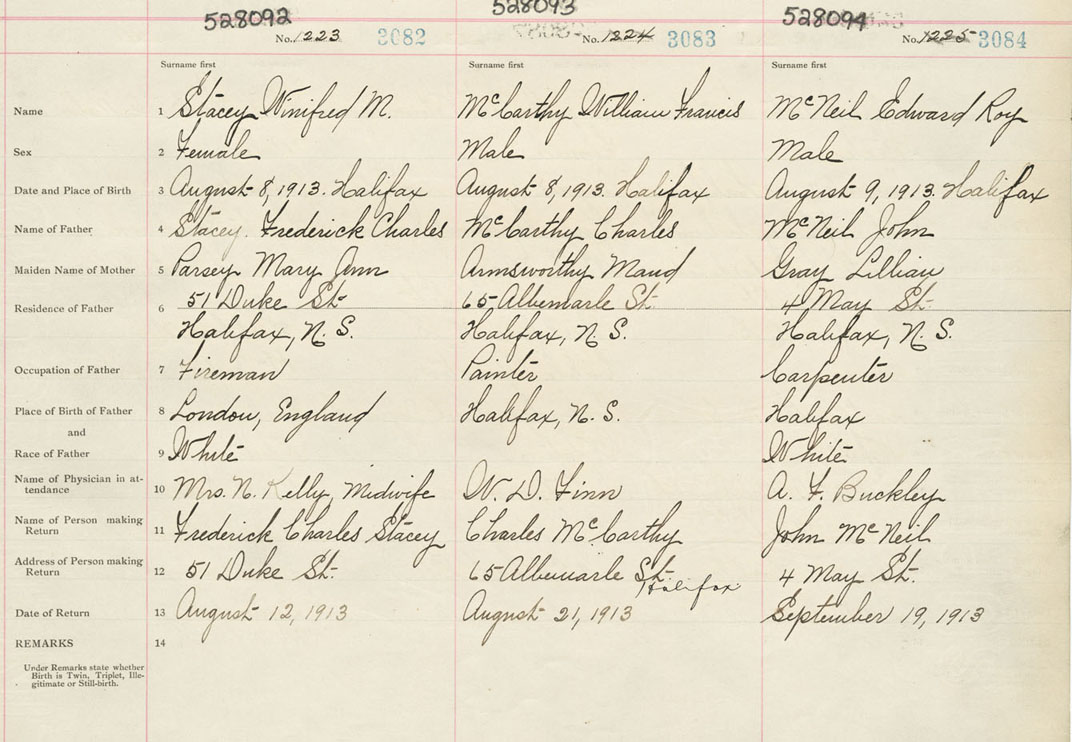 528092 528093 528094
No. 1223 3082 No. 1224 3083 No. 1225 3084
Surname first Surname first Surname first
Name 1 Stacey Winifred M. McCarthy William Francis McNeil Edward Roy
Sex 2 Female Male Male
Date and Place of Birth 3 August 8, 1913. Halifax August 8, 1913. Halifax August 9, 1913. Halifax
Name of Father 4 Stacey. Frederick Charles McCarthy Charles McNeil John
Maiden Name of Mother 5 Parsey Mary Ann Armsworthy Maud Gray Lillian
Residence of Father 6 51 Duke St. 65 Albemarle St. 4 May St.
Halifax, N. S. Halifax, N. S. Halifax, N. S.
Occupation of Father 7 Fireman Painter Carpenter
Place of Birth of Father 8 London, England Halifax, N. S. Halifax
and
Race of Father 9 White White
Name of Physician in at-
tendance 10 Mrs. N. Kelly, Midwife W. D. Finn A. F. Buckley
Name of Person making
Return 11 Frederick Charles Stacey Charles McCarthy John McNeil
Address of Person making
Return 12 51 Duke St. 65 Albemarle St. Halifax 4 May St.
Date of Return 13 August 12, 1913 August 21, 1913 September 19, 1913
REMARKS 14
Under Remarks state whether
Birth is Twin, Triplet, Ille-
gitimate or Still-birth.